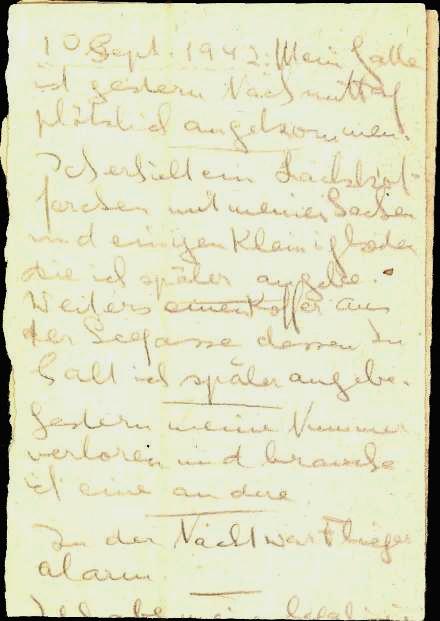 10 Sept. 1942. Mein Gatte
ist gestern Nachmittag
plötzlich angekommen.
Ich erhielt ein
mit meinen Sachen
und einigen Kleinigkeiten
die ich später angebe.
Weiters einen Koffer aus
der Seegasse dessen In
halt ich später angebe.
Gestern meine Nummer
verloren und brauche
ich eine andere
In der Nacht war Flieger
alarm.